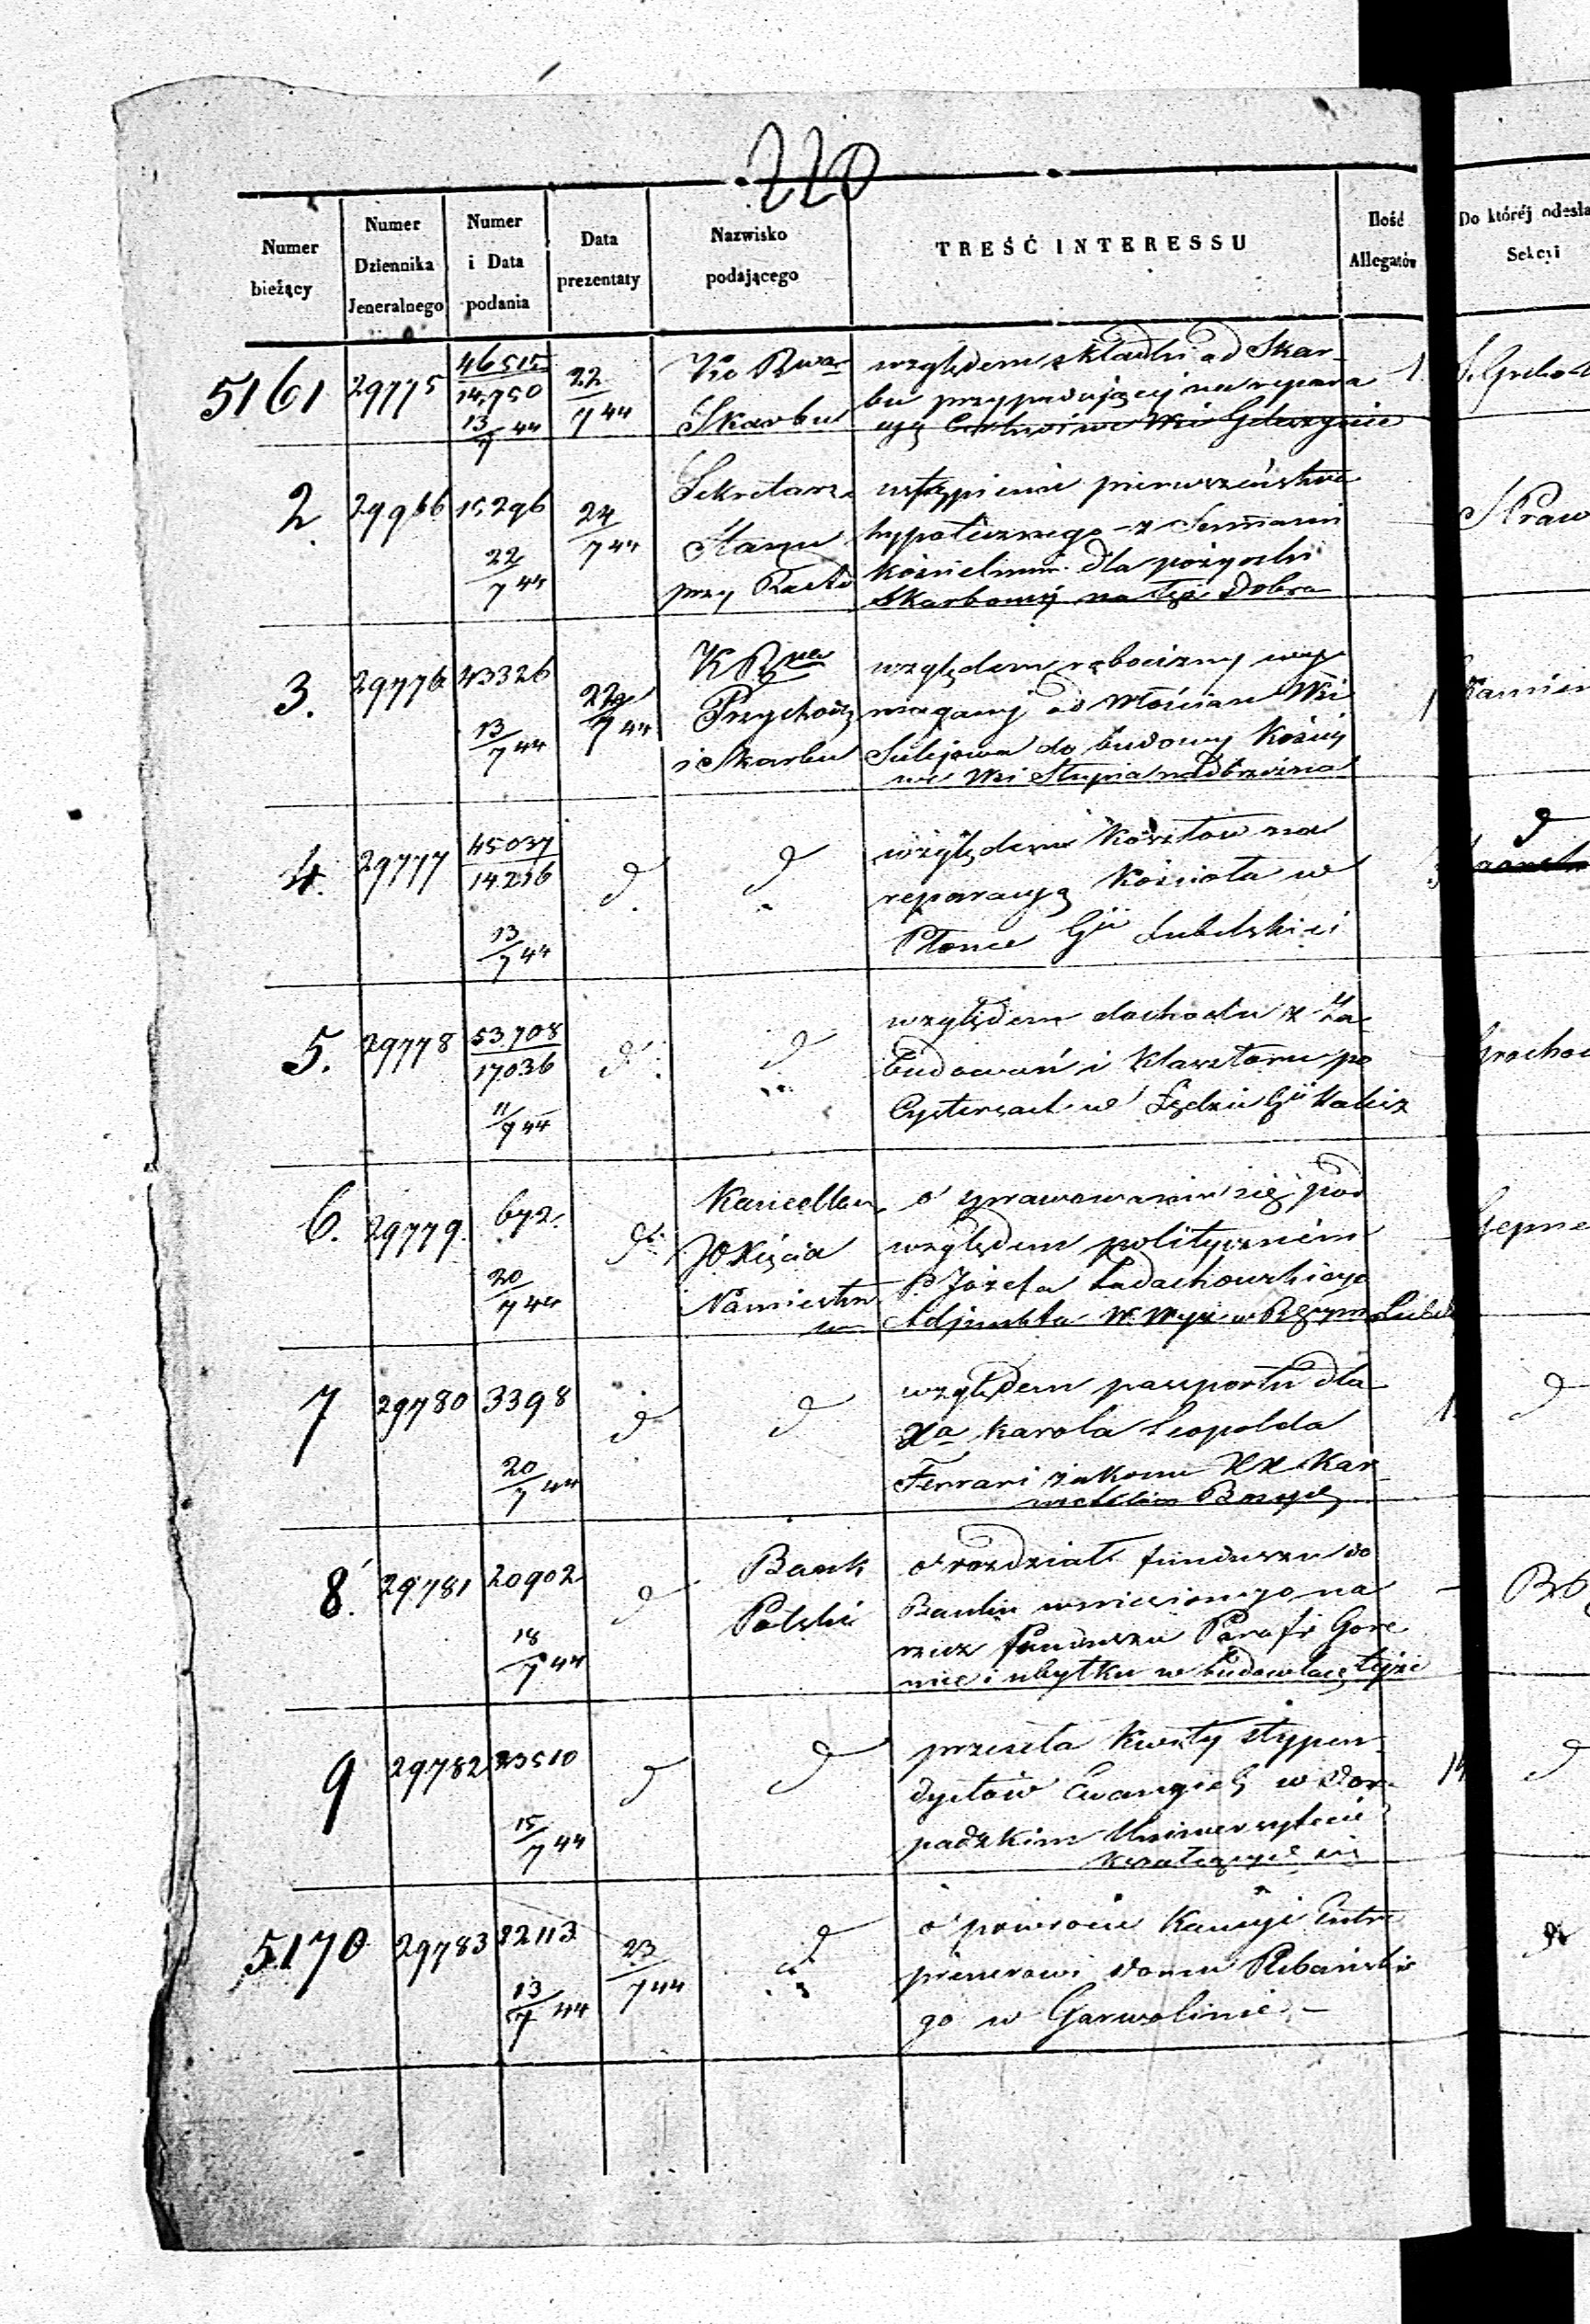 220
Numer bieżący
Numer Dziennika Jeneralnego
Numer i Data podania
Data prezentaty
Nazwisko podającego
TREŚĆ INTERESSU
Ilość Allegatów
Do któréj odesła
Sekcyi
5161 29775 46515 14,750 13/7 44 22/7 44
Skarbu
względem składki od Skar-
bu przypadającej na repara
cyą
1
2. 29966 15296 22/7 44 24/7 44
Sekretarz
Stanu
przy Radzie
ustąpienie pierwszeństwa
hypotecznego z Summami
kościelnemi dla pożyczki
Skarbowej na też Dobra
Praw
3. 29776 43326 13/7 44 22/7 44
K R
Przychodów
i Skarbu
względem robocizny wy
maganej od Włościan Wsi
Sulejowa do budowy Kościoła
we Wsi Słupia nadbrzeżna
4. 29777 45037 14216 13/7 44 d d
względem kosztów na
reparacyą Kościoła w
Płonce Gii Lubelskiej
d
5. 29778 53,708 17036 11/7 44 d d
względem dochodu z Za
budowań i Klasztoru po
Cystersach w Lędzie Gii Kalisz
Grochow
6. 29779. 672. 20/7 44 d
Kancellar
JO Xięcia
Namiestni
o sprawowaniu się pod
względem politycznem
P Józefa Ladachowskiego
Adjunkta W. Wyz w Rz
7 29780 3398 20/7 44 d d
względem paszportu dla
Xa Karola Leopolda
Ferrari zakonu XX Kar
melitów Bosych
1. d
8. 29781 20902 18/7 44 d
Bank
Polski
o rozdział funduszu do
Banku wniesionego na
rzecz funduszu Parafi Gore
nice i ubytku w budowlach tejże
9 29782 23510 15/7 44 d d
przesyła Kwity stypen
dystów Ewangiel w Dor
padzkim Uniwersytecie
kształcących się
14 d
5170 29783 82113 13/7 44 23/7 44 d
o powrocie Kaucyi Entre
prenerowi domu Plebańskie
go w Garwolinie. –